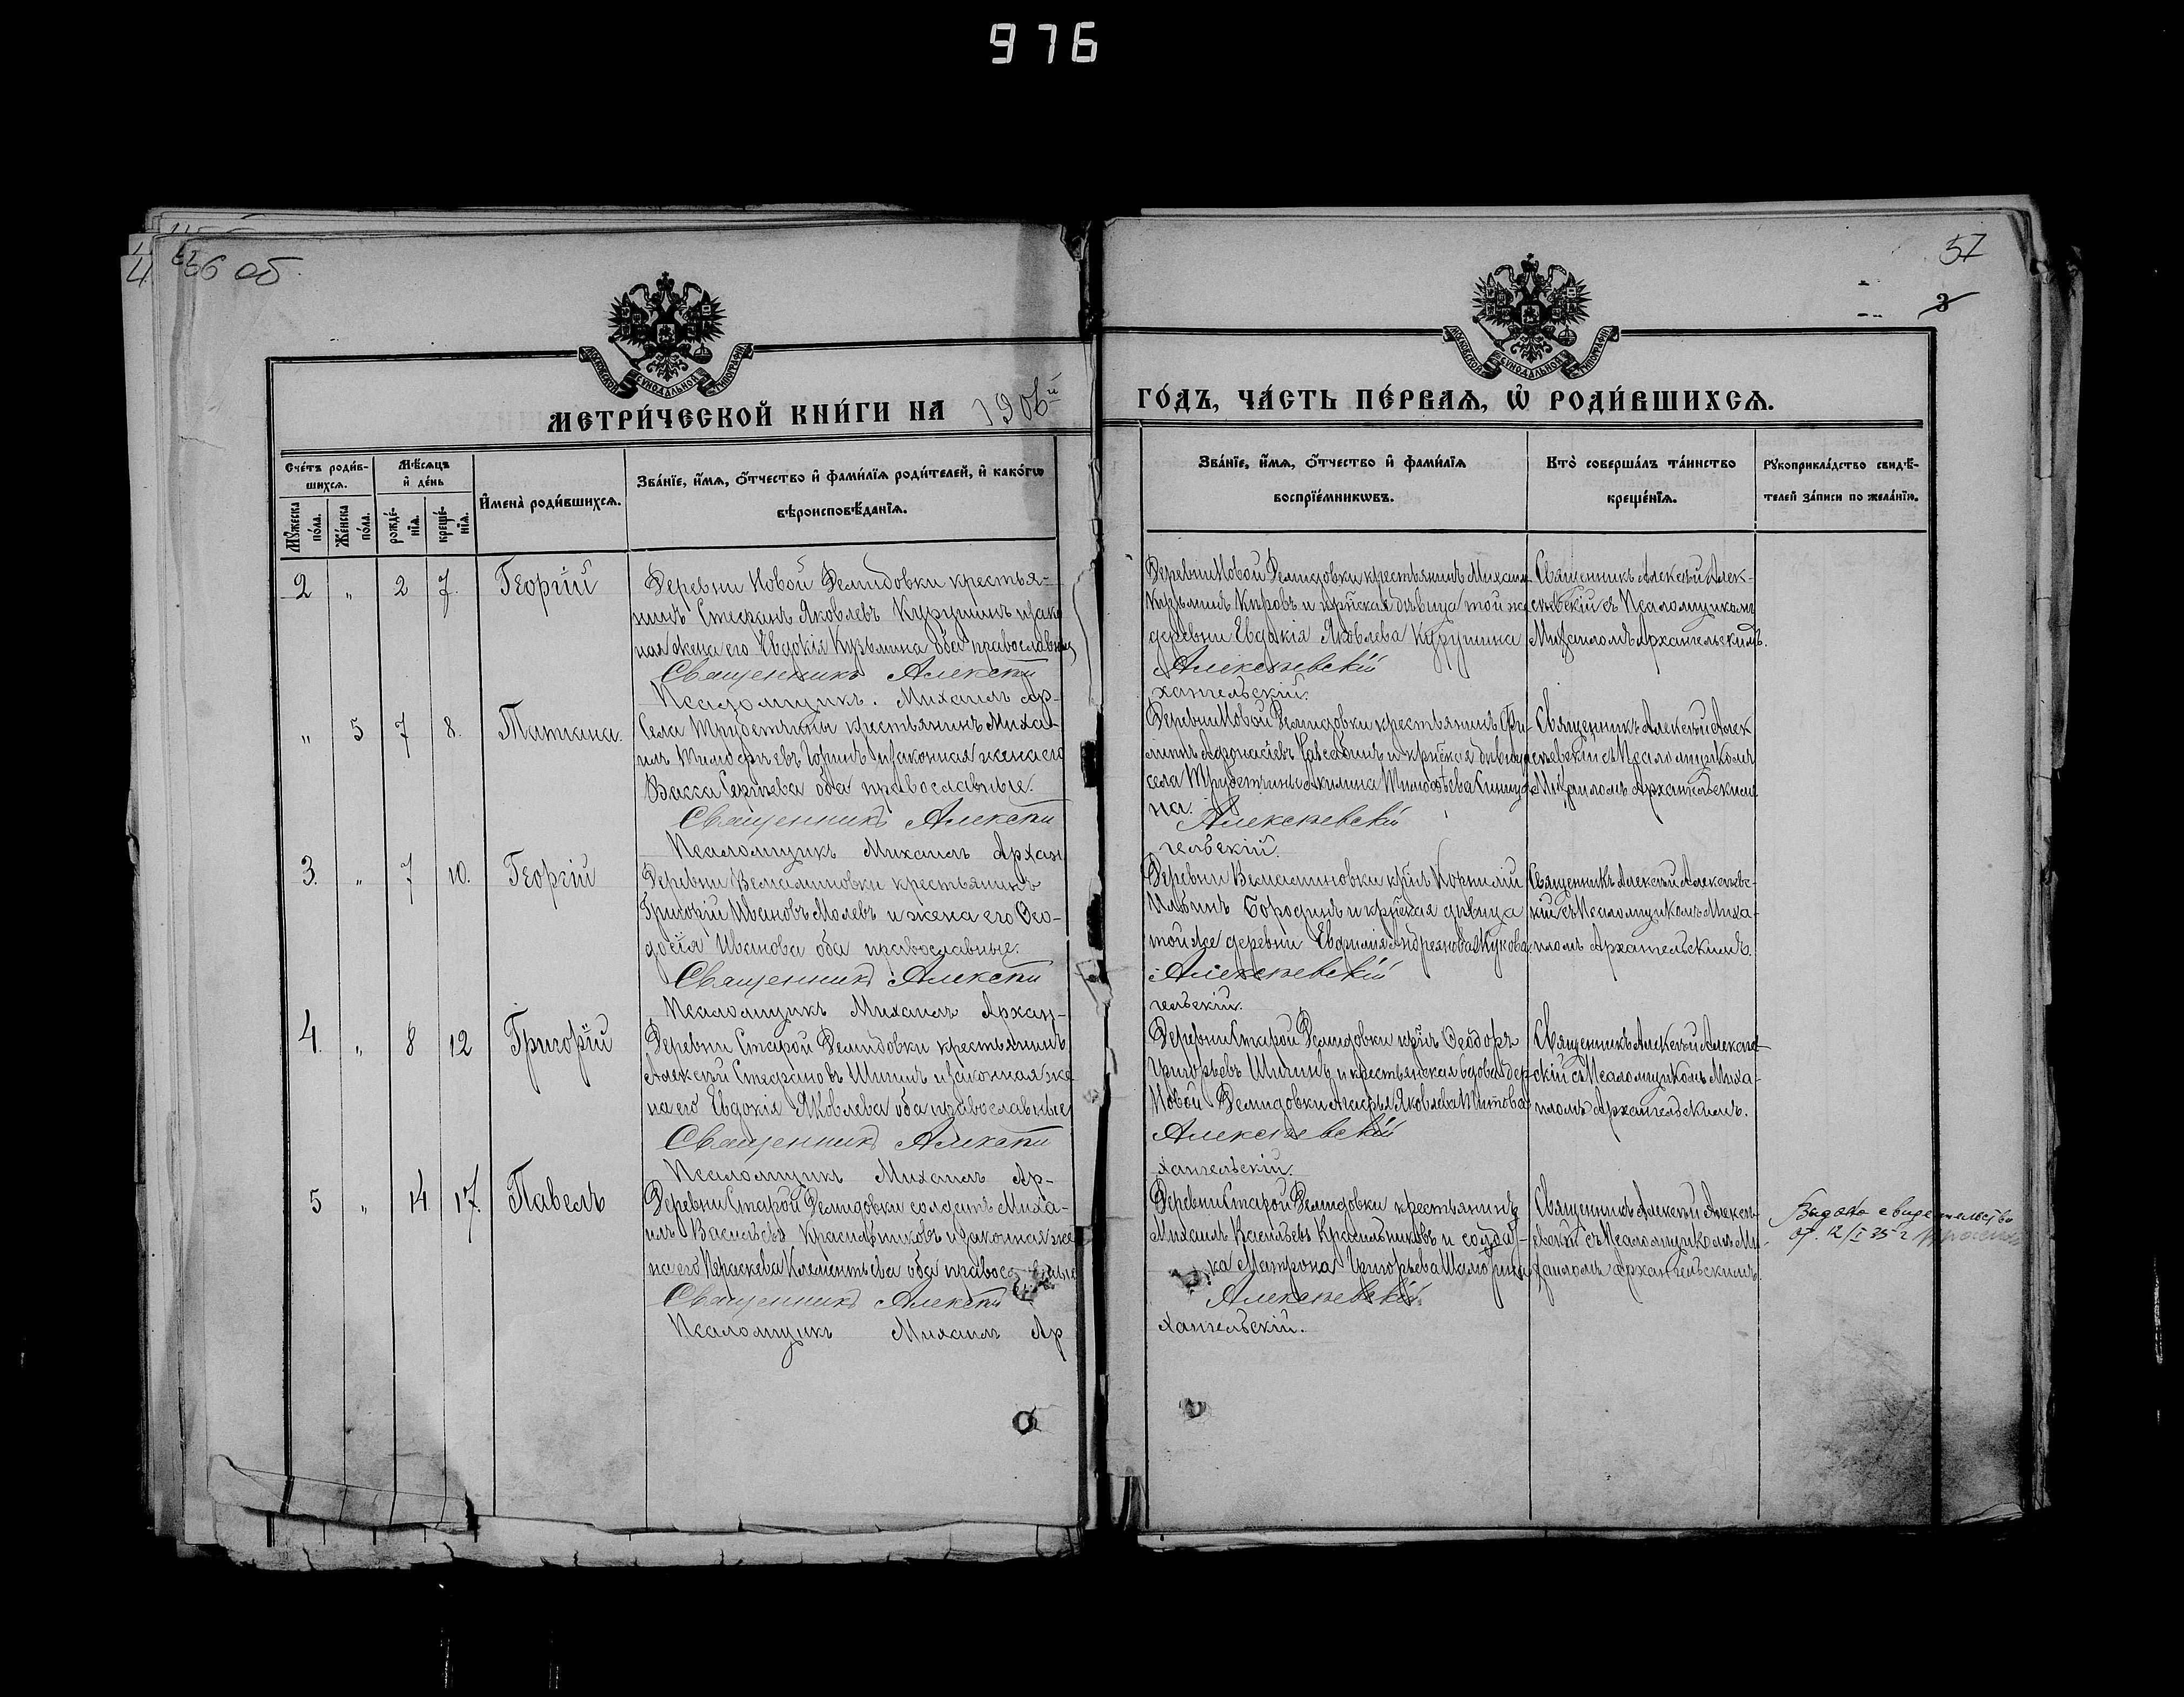 976
56 об.
57
3
МОСКОВСКОЙ СѴНОДАЛЬНОЙ ТИПОГРАФІИ
МОСКОВСКОЙ СѴНОДАЛЬНОЙ ТИПОГРАФІИ
МЕТРИ́ЧЕСКОЙ КНИ́ГИ НА 1906й
ГО́ДЪ, ЧА́СТЬ ПЕ́РВАѦ, Ѡ҆ РОДИ́ВШИХСѦ.
Сче́тъ роди́в-
шихсѧ.
Мѣ́сѧцъ
и҆ де́нь
Мꙋ́жеска по́ла.
Же́нска по́ла.
рожде́-
нїѧ.
креще́-
нїѧ.
И҆мена̀ роди́вшихсѧ.
Зва́нїе, и҆́мѧ, ѻ҆́тчество и҆ фами́лїѧ роди́телей, и҆ како́гѡ
вѣроисповѣ́данїѧ.
Зва́нїе, и҆́мѧ, ѻ҆́тчество и҆ фами́лїѧ
воспрїе́мникѡвъ.
Кто̀ соверша́лъ та́инство
креще́нїѧ.
Рꙋкоприкла́дство свидѣ́-
телей за́писи по жела́нїю.
2 " 2 7. Георгій
Деревни Новой Демидовки крестья-
нинъ Стефанъ Яковлевъ Курушинъ и зако
ная жена его Евдокія Кузьмина оба православны
Священникъ Алексѣй
Псаломщикъ. Михаилъ Ар-
Деревни Новой Демидовки крестьянинъ Михаил
Кузьминъ Кировъ и кр̃нская дѣвица той же
деревни Евдокія Яковлева Курушина
Алексѣевскій
хангельскій.
Священникъ Алексѣй Алек-
сѣевскій съ Псаломщикомъ
Михаиломъ Архангельскимъ.
" 5 7 8. Татіана.
Села Трубетчины крестьянинъ Миха-
илъ Тимоѳеевъ Горинъ и законная жена его
Васса Сергіева оба православные.
Священникъ Алексѣй
Псаломщикъ Михаилъ Архан
Деревни Новой Демидовки крестьянинъ Фи-
липъ Афонасіевъ и кр̃нская дѣвица
села Трубетчины Акилина Тимоѳеева Синицы
на.
Алексѣевскій
гельскій.
Священникъ Алексѣй Алек
сѣевскій съ Псаломщикомъ
Михаиломъ Архангельскимъ
3. " 7 10. Георгій
Деревни Вельяминовки крестьянинъ
Григорій Ивановъ Молевъ и жена его Ѳео-
досія Иванова оба православные.
Священникъ Алексѣй
Псаломщикъ Михаилъ Архан-
Деревни Вельяминовки кр̃нъ Корнилій
Ильинъ Бородинъ и кр̃нская дѣвица
той же деревни Евфимія Андреянова Жукова
Алексѣевскій
гельскій.
Священникъ Алексѣй Алексѣевс-
кій съ Псаломщикомъ Миха-
иломъ Архангельскимъ.
4. " 8 12 Григорій
Деревни Старой Демидовки крестьянинъ
Алексѣй Стефановъ Шишинъ и законная же
на его Евдокія Яковлева оба православные
Священникъ Алексѣй
Псаломщикъ Михаилъ Ар-
Деревни Старой Демидовки кр̃нъ Ѳеодоръ
Григорьевъ Шишинъ и крестьянская вдова дер
Новой Демидовки Марья Яковлева Титова
Алексѣевскій
хангельскій.
Священникъ Алексѣй Алексѣев
скій съ Псаломщикомъ Миха-
иломъ Архангельскимъ.
5 " 14 17. Павелъ
Деревни Старой Демидовки солдатъ Миха-
илъ Васильевъ Красильниковъ и законная же
на его Параскева Клементьева оба правос вные
Священникъ Алексѣй
Псаломщикъ Михаилъ Ар
Деревни Старой Демидовки крестьянинъ
Михаилъ Васильевъ Красильниковъ и солдат-
ка Матрона Григорьева
Алексѣевскій
хангельскій.
Священникъ Алексѣй Алексѣ-
евскій съ Псаломщикомъ Ми-
хаиломъ Архангельскимъ.
Выдано свидетельство
от 12/I 35 г